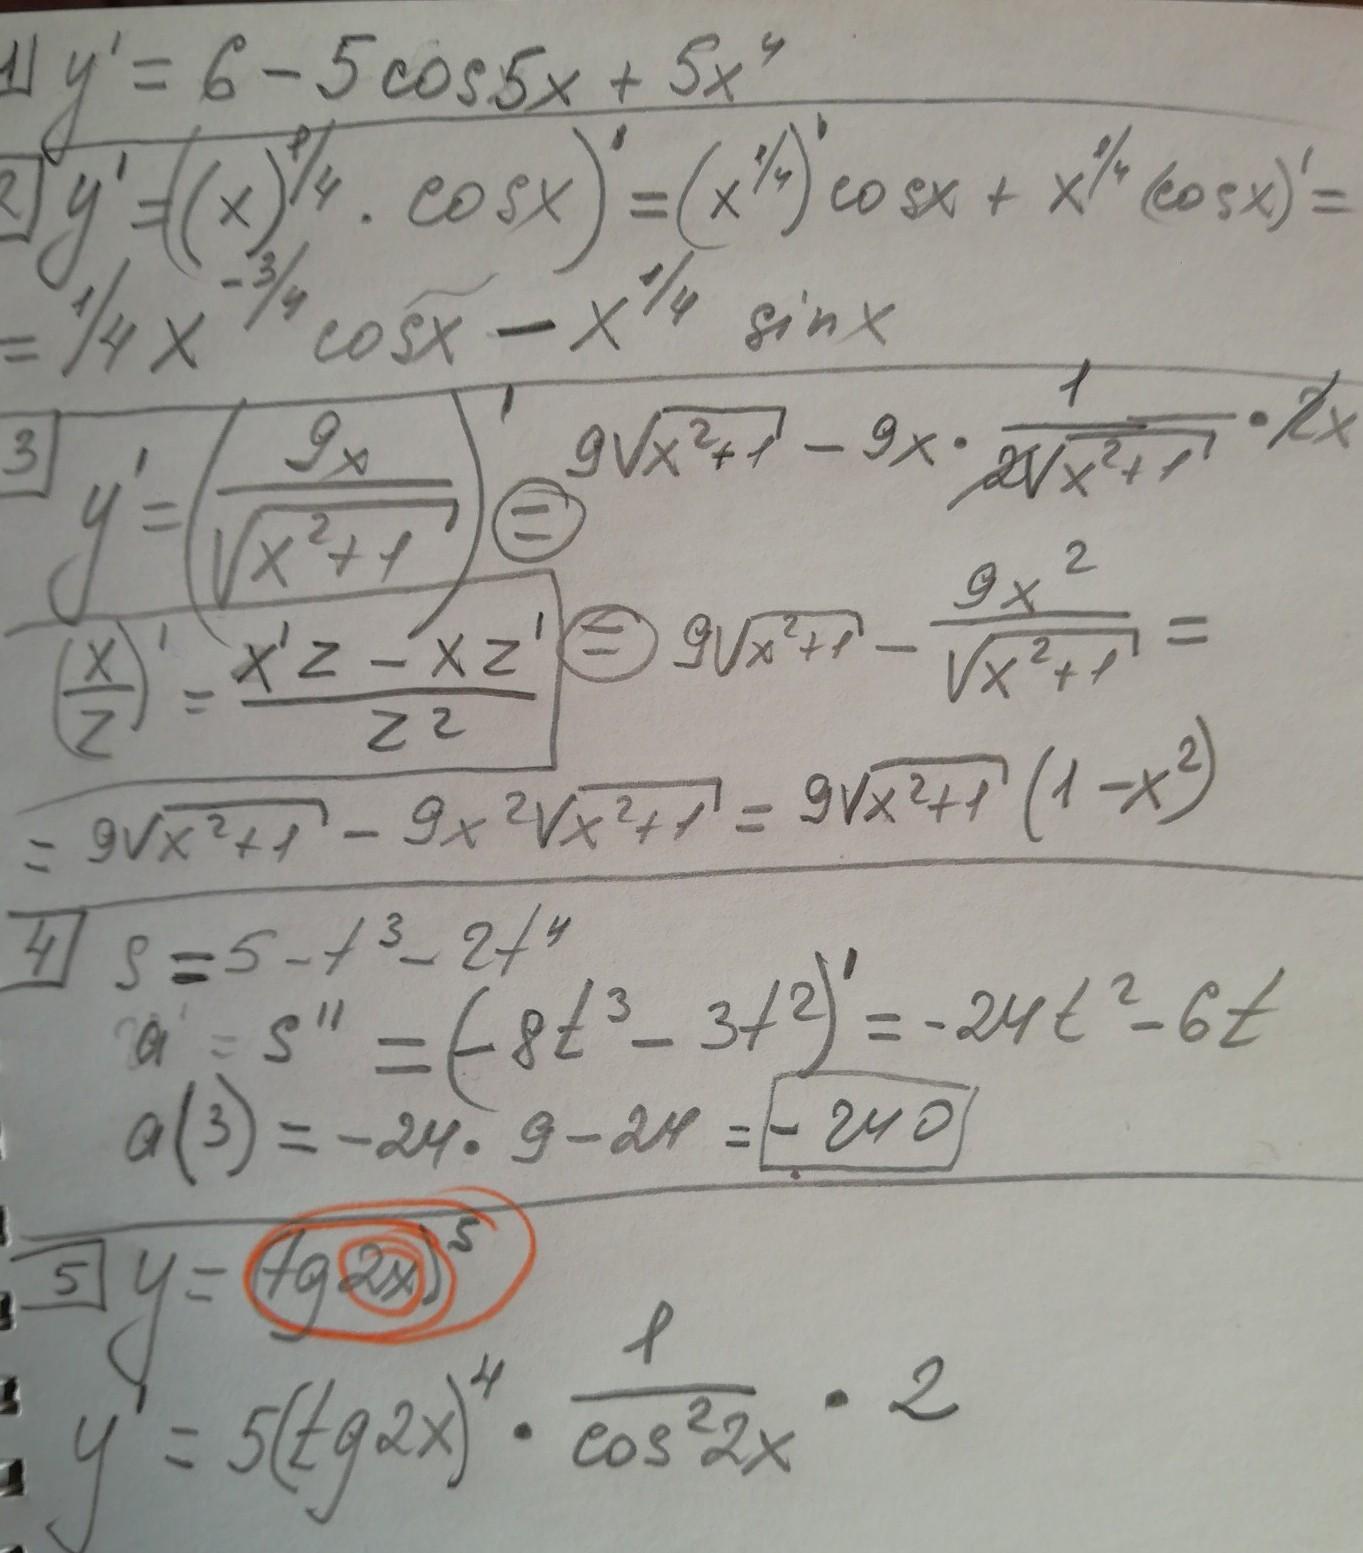 1) y' = 6 - 5cos5x + 5x⁴
2) y' = ((x)^1/4 · cosx)' = (x^1/4)' cosx + x^1/4 (cosx)' =
= 1/4 x^-3/4 cosx - x^1/4 sinx
3) y' = (9x / √(x²+1))' = 9√(x²+1) - 9x · 1/(2√(x²+1)) · 2x
(x/z)' = (x'z - xz')/z²
= 9√(x²+1) - 9x²/√(x²+1) =
= 9√(x²+1) - 9x²√(x²+1) = 9√(x²+1) (1-x²)
4) s = 5 - t³ - 2t⁴
a = s'' = (-8t³ - 3t²)' = -24t² - 6t
a(3) = -24 · 9 - 24 = -240
5) y = (tg2x)⁵
y' = 5(tg2x)⁴ · 1/cos²2x · 2